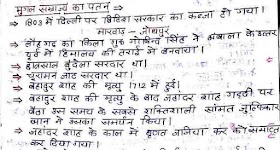 मुगल साम्राज्य का पतन ⇒
⇒ 1803 में दिल्ली पर ब्रिटिश सरकार का कब्जा हो गया।
मारवाड़ - जोधपुर
⇒ लौहगढ़ का किला गुरु गोविन्द सिंह ने अंबाला के उत्तर
पूर्व में हिमालय की तराई में बनवाया।
⇒ छत्रसाल बुंदेला सरदार था।
⇒ चूरामन जाट सरदार था।
⇒ बहादुर शाह की मृत्यु 1712 में हुई।
⇒ बहादुर शाह की मृत्यु के बाद जहांदर शाह गद्दी पर
बैठा उस समय के सबसे शक्तिशाली सामंत जुल्फिकार
खान ने उसका समर्थन किया।
⇒ जहांदर शाह के काल में जजिया कर को समाप्त
कर दिया गया।